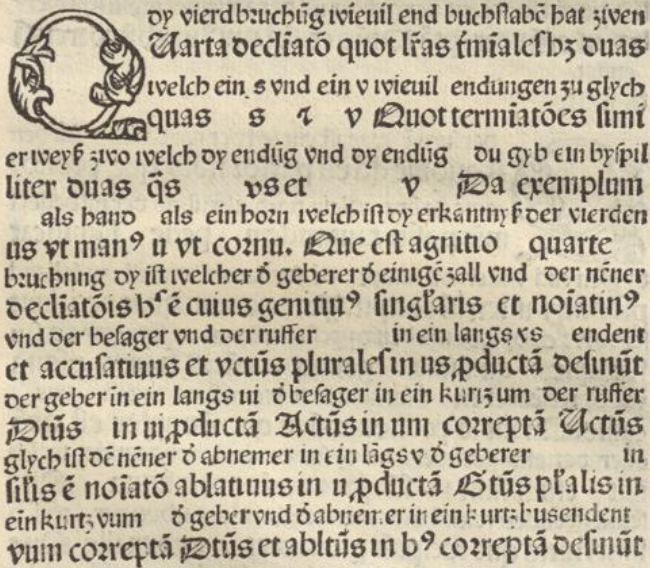 dy vierd bruchūg wieuil end buchstabē hat ziven
QUarta decliatō quot lr̄as t̄mīales hȝ duas
welch ein s vnd ein v wieuil endungen zu glych
quas s ⁊ v Quot termīatōes simi
er weyß zwo welch dy endūg vnd dy endūg du gyb ein byspil
liter duas q̄s vs et v Da exemplum
als hand als ein horn welch ist dy erkantnyß der vierden
us vt manꝰ u vt cornu. Que est agnitio quarte
bruchnng dy ist welcher d̄ geberer d̄ einigē zall vnd der nēner
decliatōis hͨ ē cuius genitiuꝰ singl̄aris et noīatiuꝰ
vnd der besager vnd der ruffer in ein langs vs endent
et accusatiuus et vctūs plurales in us ꝓductā desinūt
der geber in ein langs ui d̄ besager in ein kurtz um der ruffer
Dtūs in ui ꝓductā Actūs in um correptā Uctūs
glych ist dē nēner d̄ abnemer in ein lāgs v d̄ geberer in
silīs ē noīatō ablatiuus in u ꝓductā Gtūs pl̄alis in
ein kurtz vum d̄ geber vnd d̄ abnemer in ein kurtz bus endent
vum correptā Dtūs et abltūs in bꝰ correptā desinūt